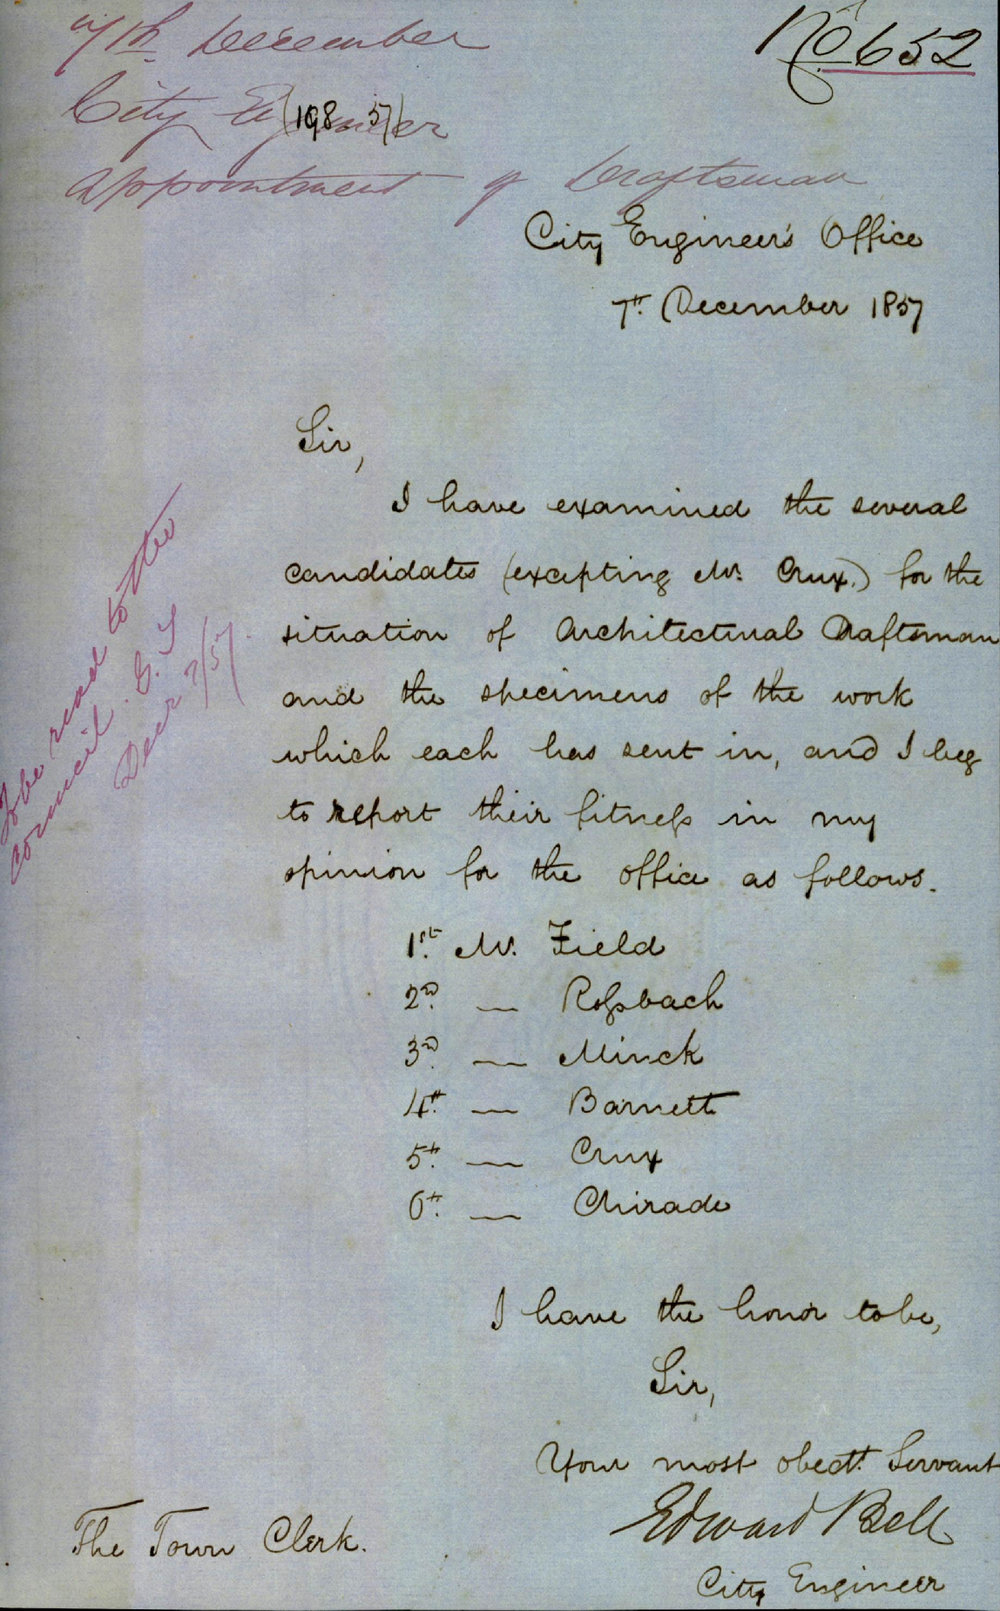 7th December
No 652
City Engineer
(198 57)
Appointment of Draftsman
City Engineer's Office
7th December 1857
Sir,
I have examined the several
candidates (excepting Mr. Crux.) for the
situation of Architectural Draftsman
and the specimens of the work
which each has sent in, and I beg
to report their fitness in my
opinion for the office as follows.
1st Mr. Field
2nd — Rossbach
3rd — Minck
4th — Barnett
5th — Crux
6th — Chirade
To be read to the
council. E. T
Decr 7/57.
I have the honor to be,
Sir,
Your most obedt. Servant
Edward Bell
City Engineer
The Town Clerk.